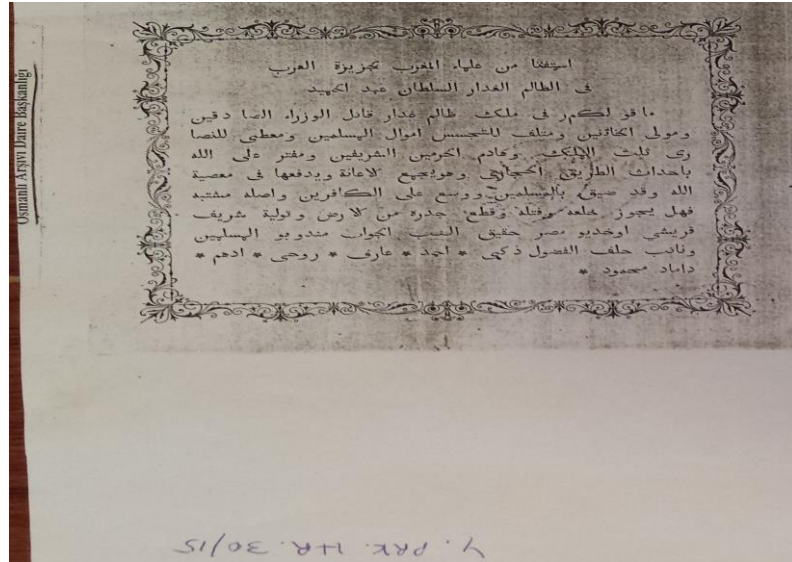 استفتا من علماء المغرب بجزيرة العرب
فى الظالم الغدار السلطان عبد الحميد
ما قولكم فى ملك ظالم غدار قاتل الوزراء الصادقين
ومولى الخائنين ومتلف للتجسس اموال المسلمين ومعطى للنصا
رى ثلث الملك وهادم الحرمين الشريفين ومفتر على الله
باحداث الطريق الحجازى وهو يجمع الاعانة ويدفعها فى معصية
الله وقد ضيق بالمسلمين ووسع على الكافرين واصله مشتبه
فهل يجوز خلعه وقتله وقطع جدره من الارض وتولية شريف
قريشى اوخديو مصر حقيق النسب الجواب مندوبو المسلمين
ونائب حلف الفضول ذكى * احمد * عارف * روحى * ادهم *
داماد محمود *
Osmanlı Arşivi Daire Başkanlığı
Y. PRK. HR. 30/15